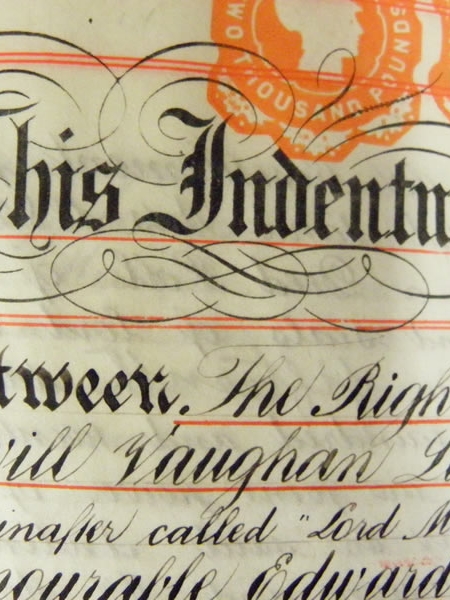 TWO THOUSAND POUNDS
This Indentu
tween The Righ
vill Vaughan L
inafter called "Lord M
nourable Edward